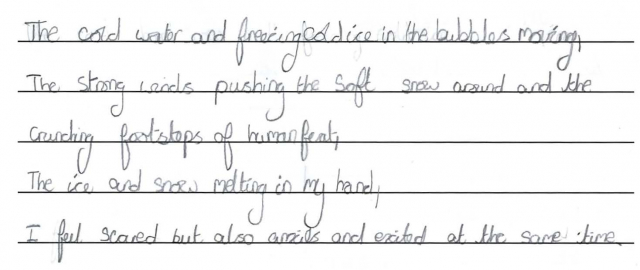 The cold water and freezing cold ice in the bubbles moving,
The strong winds pushing the soft snow around and the
crunching footstops of human feat,
The ice and snow melting in my hand,
I feel scared but also anxils and exited at the same time.